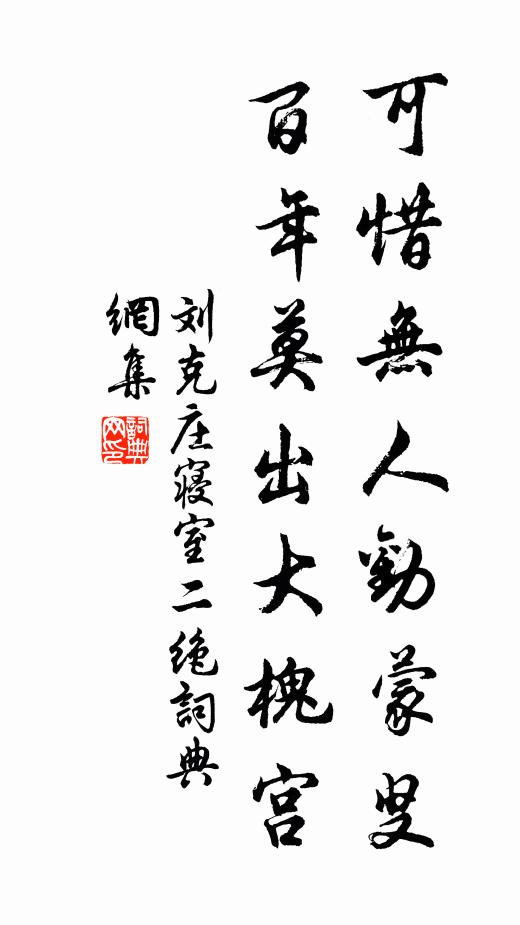 可惜無人勸蒙叟
百年莫出大槐宫
刘克庄寝室二绝詞典
網集
詞典
网印